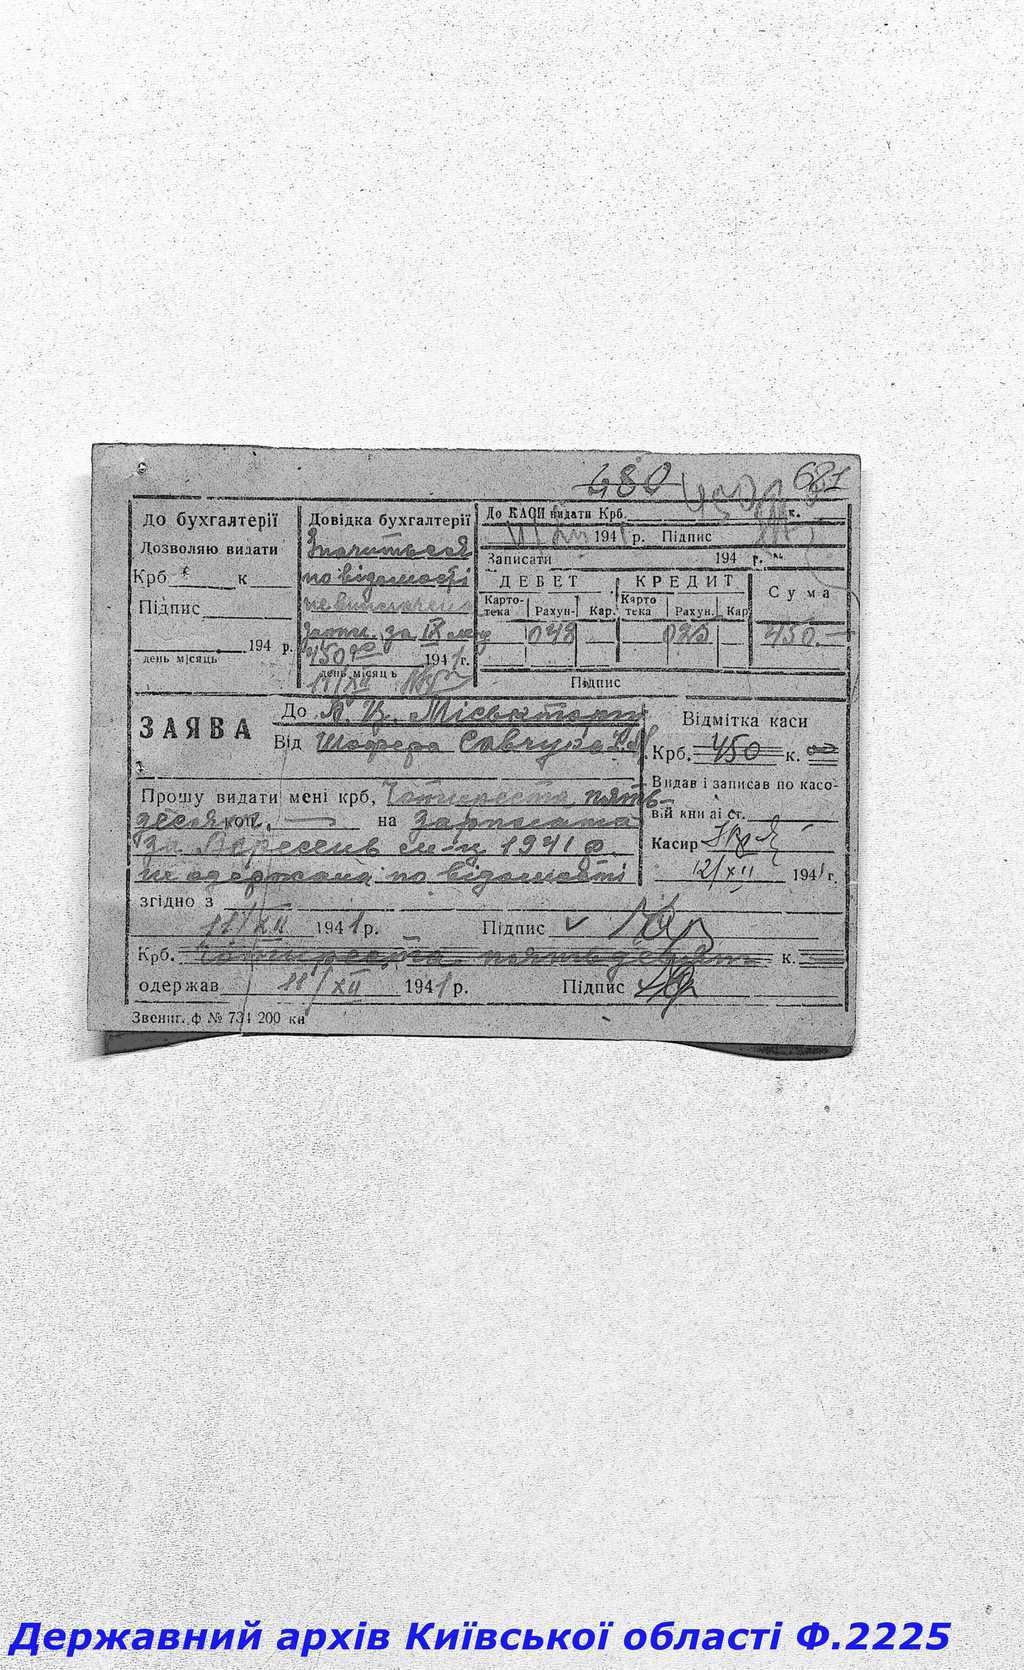 480 681
До бухгалтерії
Дозволяю видати
Крб. к
Підпис
194 р.
день місяць
Довідка бухгалтерії
Значиться
по відомості
не виплачено
за IX м-ц
450 00 1941 г.
день місяць
11/XII
До КАСИ видати Крб. к.
1941 р. Підпис
Записати 194 г.
ДЕБЕТ КРЕДИТ Сума
Карто-тека Рахун. Кар. Карто тека Рахун. Кар
048 020 450.—
Підпис
ЗАЯВА
До Міськторгу
Від Шофера Савчука
Прошу видати мені крб. Чотириста пять-
десят коп. — на Зарплата
за Вересень м-ц 1941 р.
не одержана по відомості
згідно з
11/XII 1941 р. Підпис
Крб. Чотириста пятьдесят к.
одержав 11/XII 1941 р. Підпис
Відмітка каси
Крб. 450 к. 00
Видав і записав по касо-
вій книзі ст.
Касир
12/XII 1941 г.
Звениг. ф № 734 200 кн
Державний архів Київської області Ф.2225